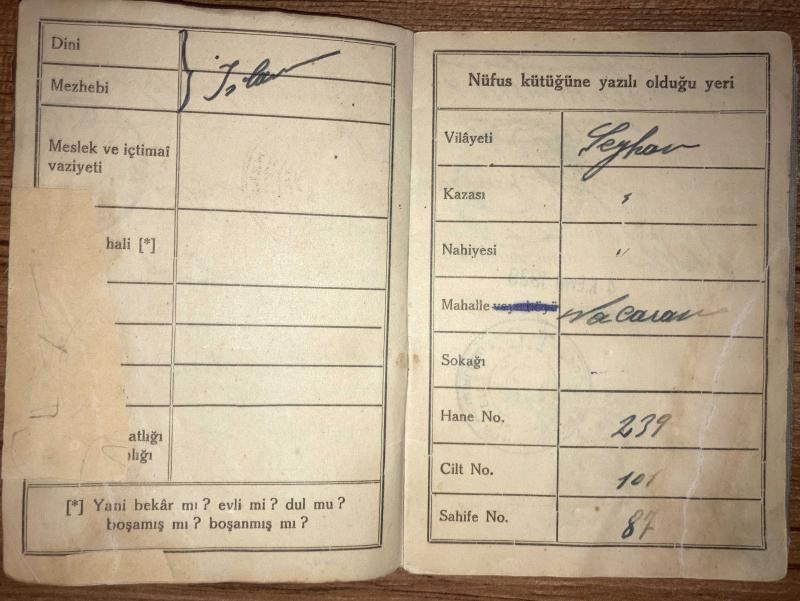 Dini
İslam
Mezhebi
Meslek ve içtimaî
vaziyeti
hali [*]
atlığı
lığı
[*] Yani bekâr mı? evli mi? dul mu?
boşamış mı? boşanmış mı?
Nüfus kütüğüne yazılı olduğu yeri
Vilâyeti Seyhan
Kazası "
Nahiyesi "
Mahalle veya köyü Nacaran
Sokağı
Hane No. 239
Cilt No. 101
Sahife No. 87